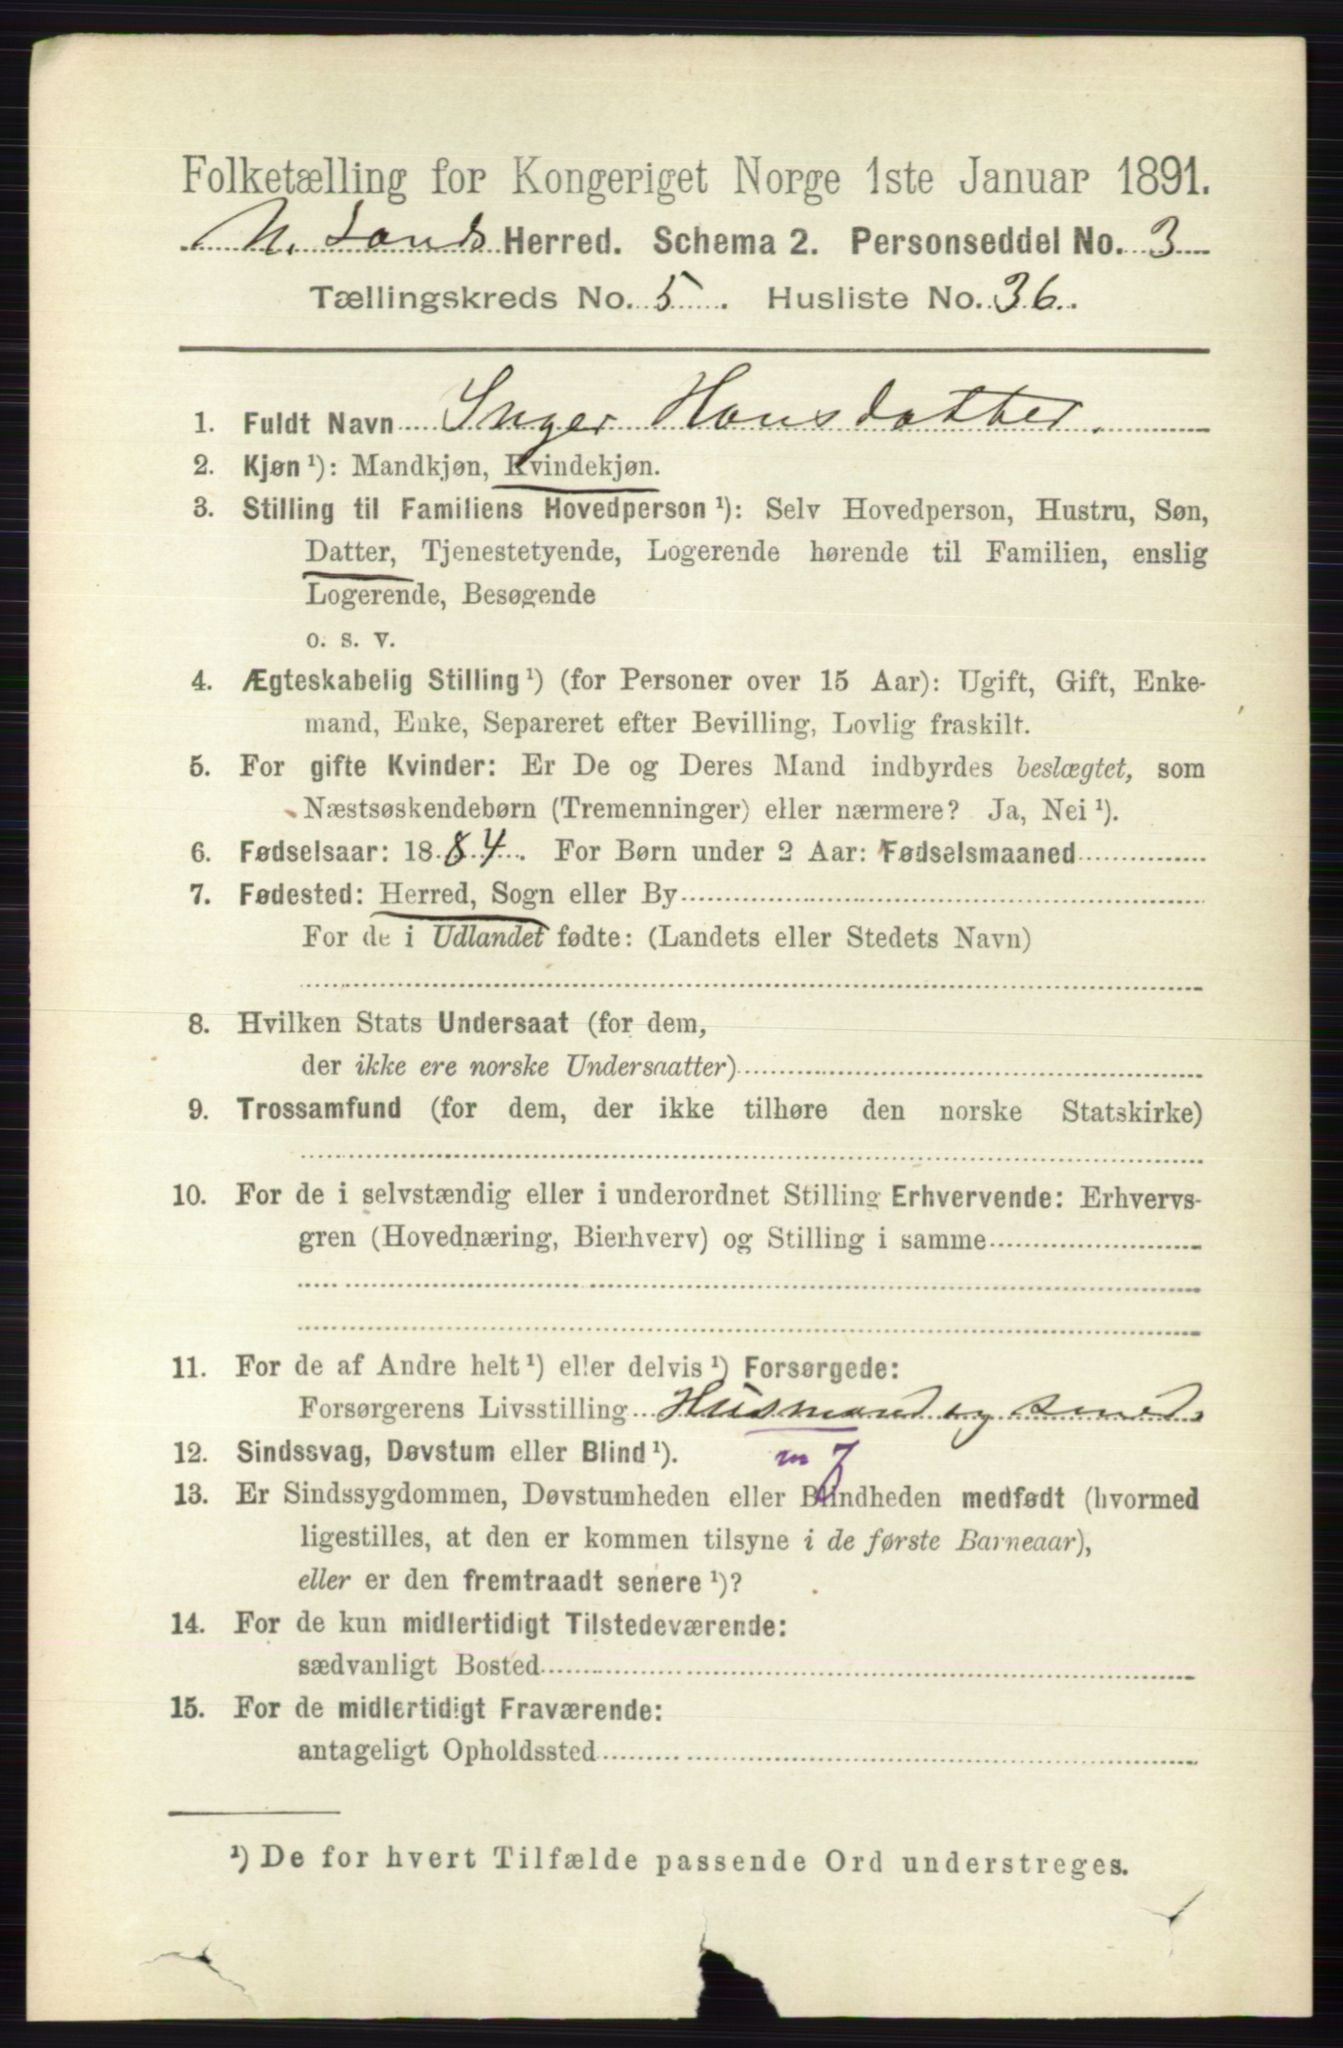 Folketælling for Kongeriget Norge 1ste Januar 1891.
N. Lands Herred. Schema 2. Personseddel No. 3
Tællingskreds No. 5. Husliste No. 36.
1. Fuldt Navn Inger Hansdatter.
2. Kjøn ¹): Mandkjøn, Kvindekjøn.
3. Stilling til Familiens Hovedperson ¹): Selv Hovedperson, Hustru, Søn,
Datter, Tjenestetyende, Logerende hørende til Familien, enslig
Logerende, Besøgende
o. s. v.
4. Ægteskabelig Stilling ¹) (for Personer over 15 Aar): Ugift, Gift, Enke-
mand, Enke, Separeret efter Bevilling, Lovlig fraskilt.
5. For gifte Kvinder: Er De og Deres Mand indbyrdes beslægtet, som
Næstsøskendebørn (Tremenninger) eller nærmere? Ja, Nei ¹).
6. Fødselsaar: 1884. For Børn under 2 Aar: Fødselsmaaned
7. Fødested: Herred, Sogn eller By
For de i Udlandet fødte: (Landets eller Stedets Navn)
8. Hvilken Stats Undersaat (for dem,
der ikke ere norske Undersaatter)
9. Trossamfund (for dem, der ikke tilhøre den norske Statskirke)
10. For de i selvstændig eller i underordnet Stilling Erhvervende: Erhvervs-
gren (Hovednæring, Bierhverv) og Stilling i samme
11. For de af Andre helt ¹) eller delvis ¹) Forsørgede:
Forsørgerens Livsstilling Husmand og smed.
12. Sindssvag, Døvstum eller Blind ¹). m J
13. Er Sindssygdommen, Døvstumheden eller Blindheden medfødt (hvormed
ligestilles, at den er kommen tilsyne i de første Barneaar),
eller er den fremtraadt senere ¹)?
14. For de kun midlertidigt Tilstedeværende:
sædvanligt Bosted
15. For de midlertidigt Fraværende:
antageligt Opholdssted
¹) De for hvert Tilfælde passende Ord understreges.